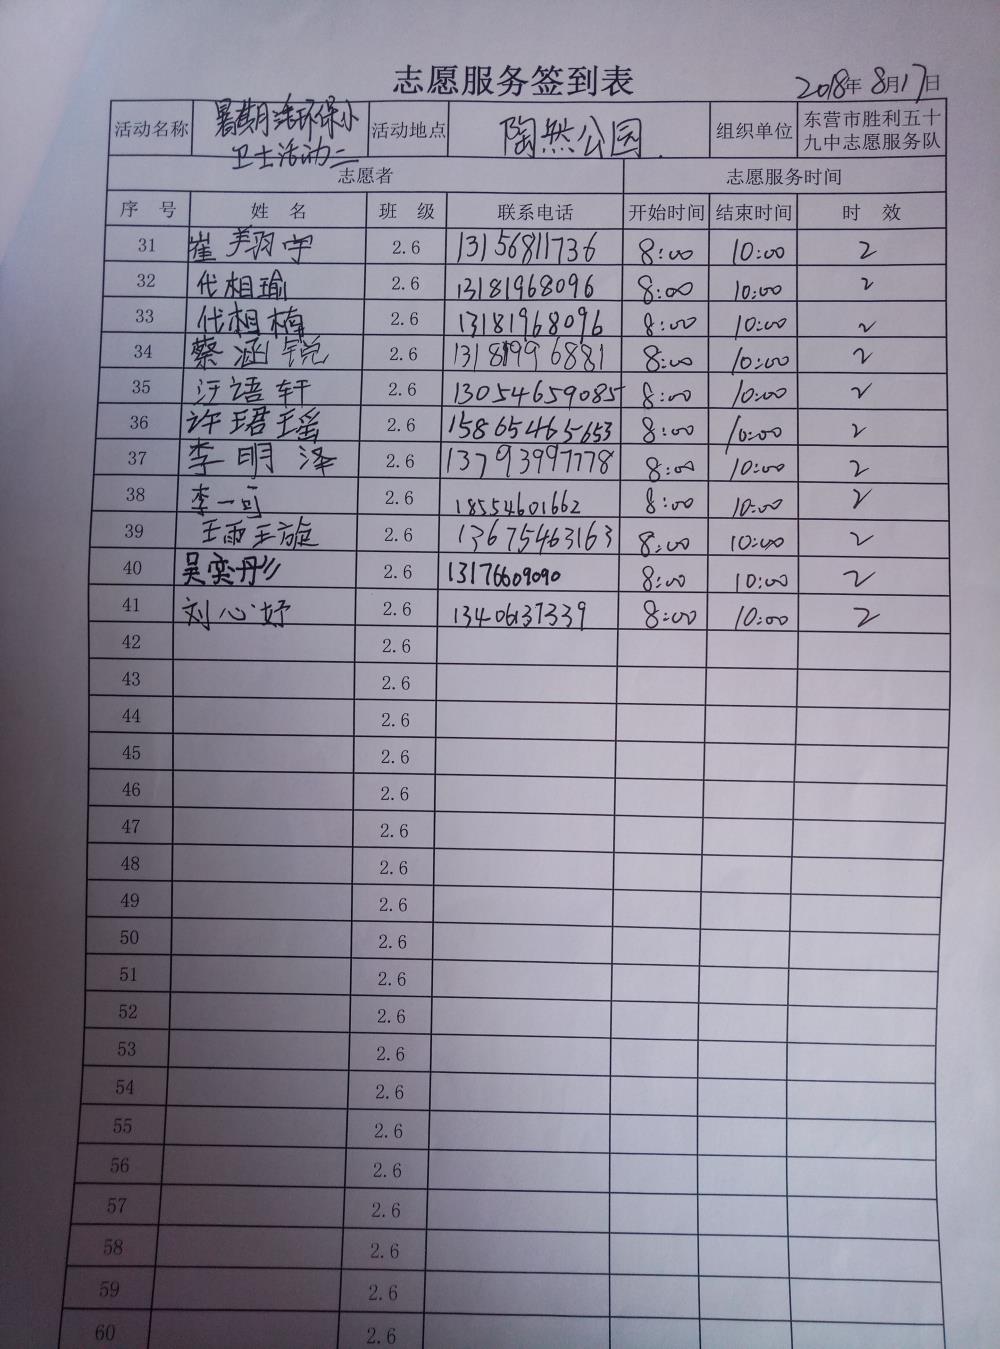 志愿服务签到表
2018年8月17日
活动名称 暑期 环保小卫士活动二 活动地点 陶然公园. 组织单位 东营市胜利五十九中志愿服务队
志愿者 志愿服务时间
序 号 姓 名 班 级 联系电话 开始时间 结束时间 时 效
31 崔羽宇 2.6 13156811736 8:00 10:00 2
32 代相瑜 2.6 13181968096 8:00 10:00 2
33 代相楠 2.6 13181968096 8:00 10:00 2
34 蔡涵锐 2.6 13181996881 8:00 10:00 2
35 汪语轩 2.6 13054659085 8:00 10:00 2
36 许珺瑶 2.6 15865465653 8:00 10:00 2
37 李明泽 2.6 13793997778 8:00 10:00 2
38 李一可 2.6 18554601662 8:00 10:00 2
39 王雨璇 2.6 13675463163 8:00 10:00 2
40 吴奕彤 2.6 13176609090 8:00 10:00 2
41 刘心妤 2.6 13406137339 8:00 10:00 2
42 2.6
43 2.6
44 2.6
45 2.6
46 2.6
47 2.6
48 2.6
49 2.6
50 2.6
51 2.6
52 2.6
53 2.6
54 2.6
55 2.6
56 2.6
57 2.6
58 2.6
59 2.6
60 2.6